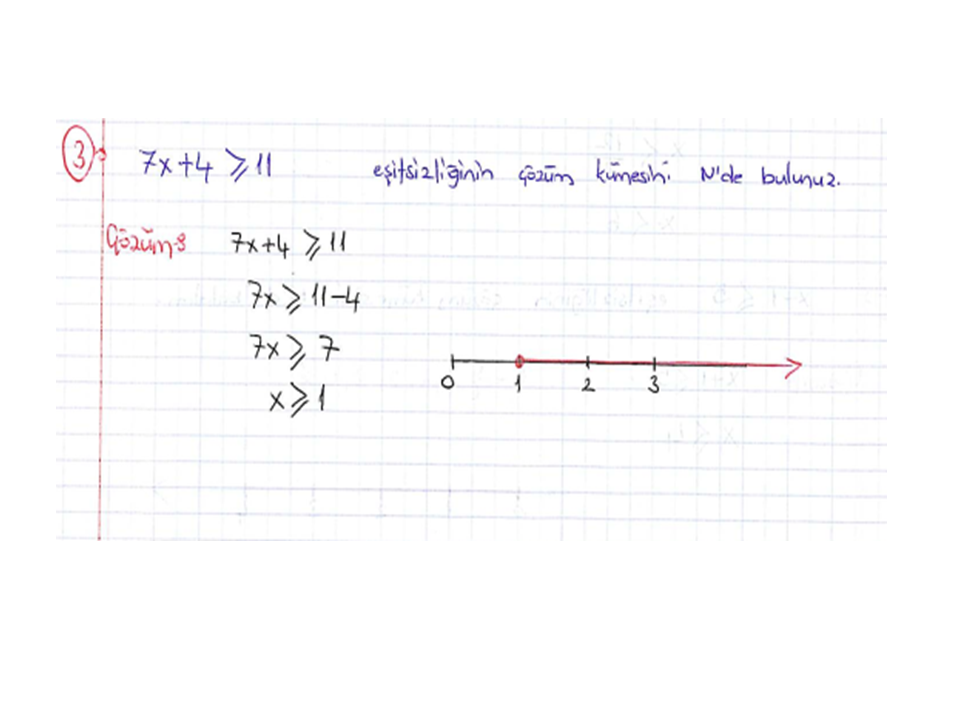 3 7x+4 ⩾ 11 eşitsizliğinin çözüm kümesini N'de bulunuz.
Çözüm: 7x+4 ⩾ 11
7x ⩾ 11-4
7x ⩾ 7
x ⩾ 1
0 1 2 3